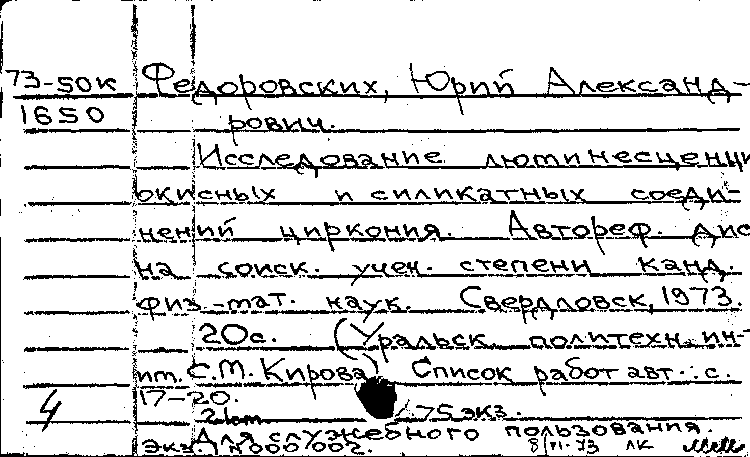 73-50к Федоровских, Юрий Александ-
1650 рович.
Исследование люминесценци
окисных и силикатных соеди-
нений циркония. Автореф. дис
на соиск. учен. степени канд.
физ.-мат. наук. Свердловск, 1973.
20с. (Уральск. политехн. ин-
им. С.М. Кирова) Список работ авт.: с.
4 17-20.
75 экз.
Для служебного пользования.
Экз. N 000002. 8/VI-73 ЛК